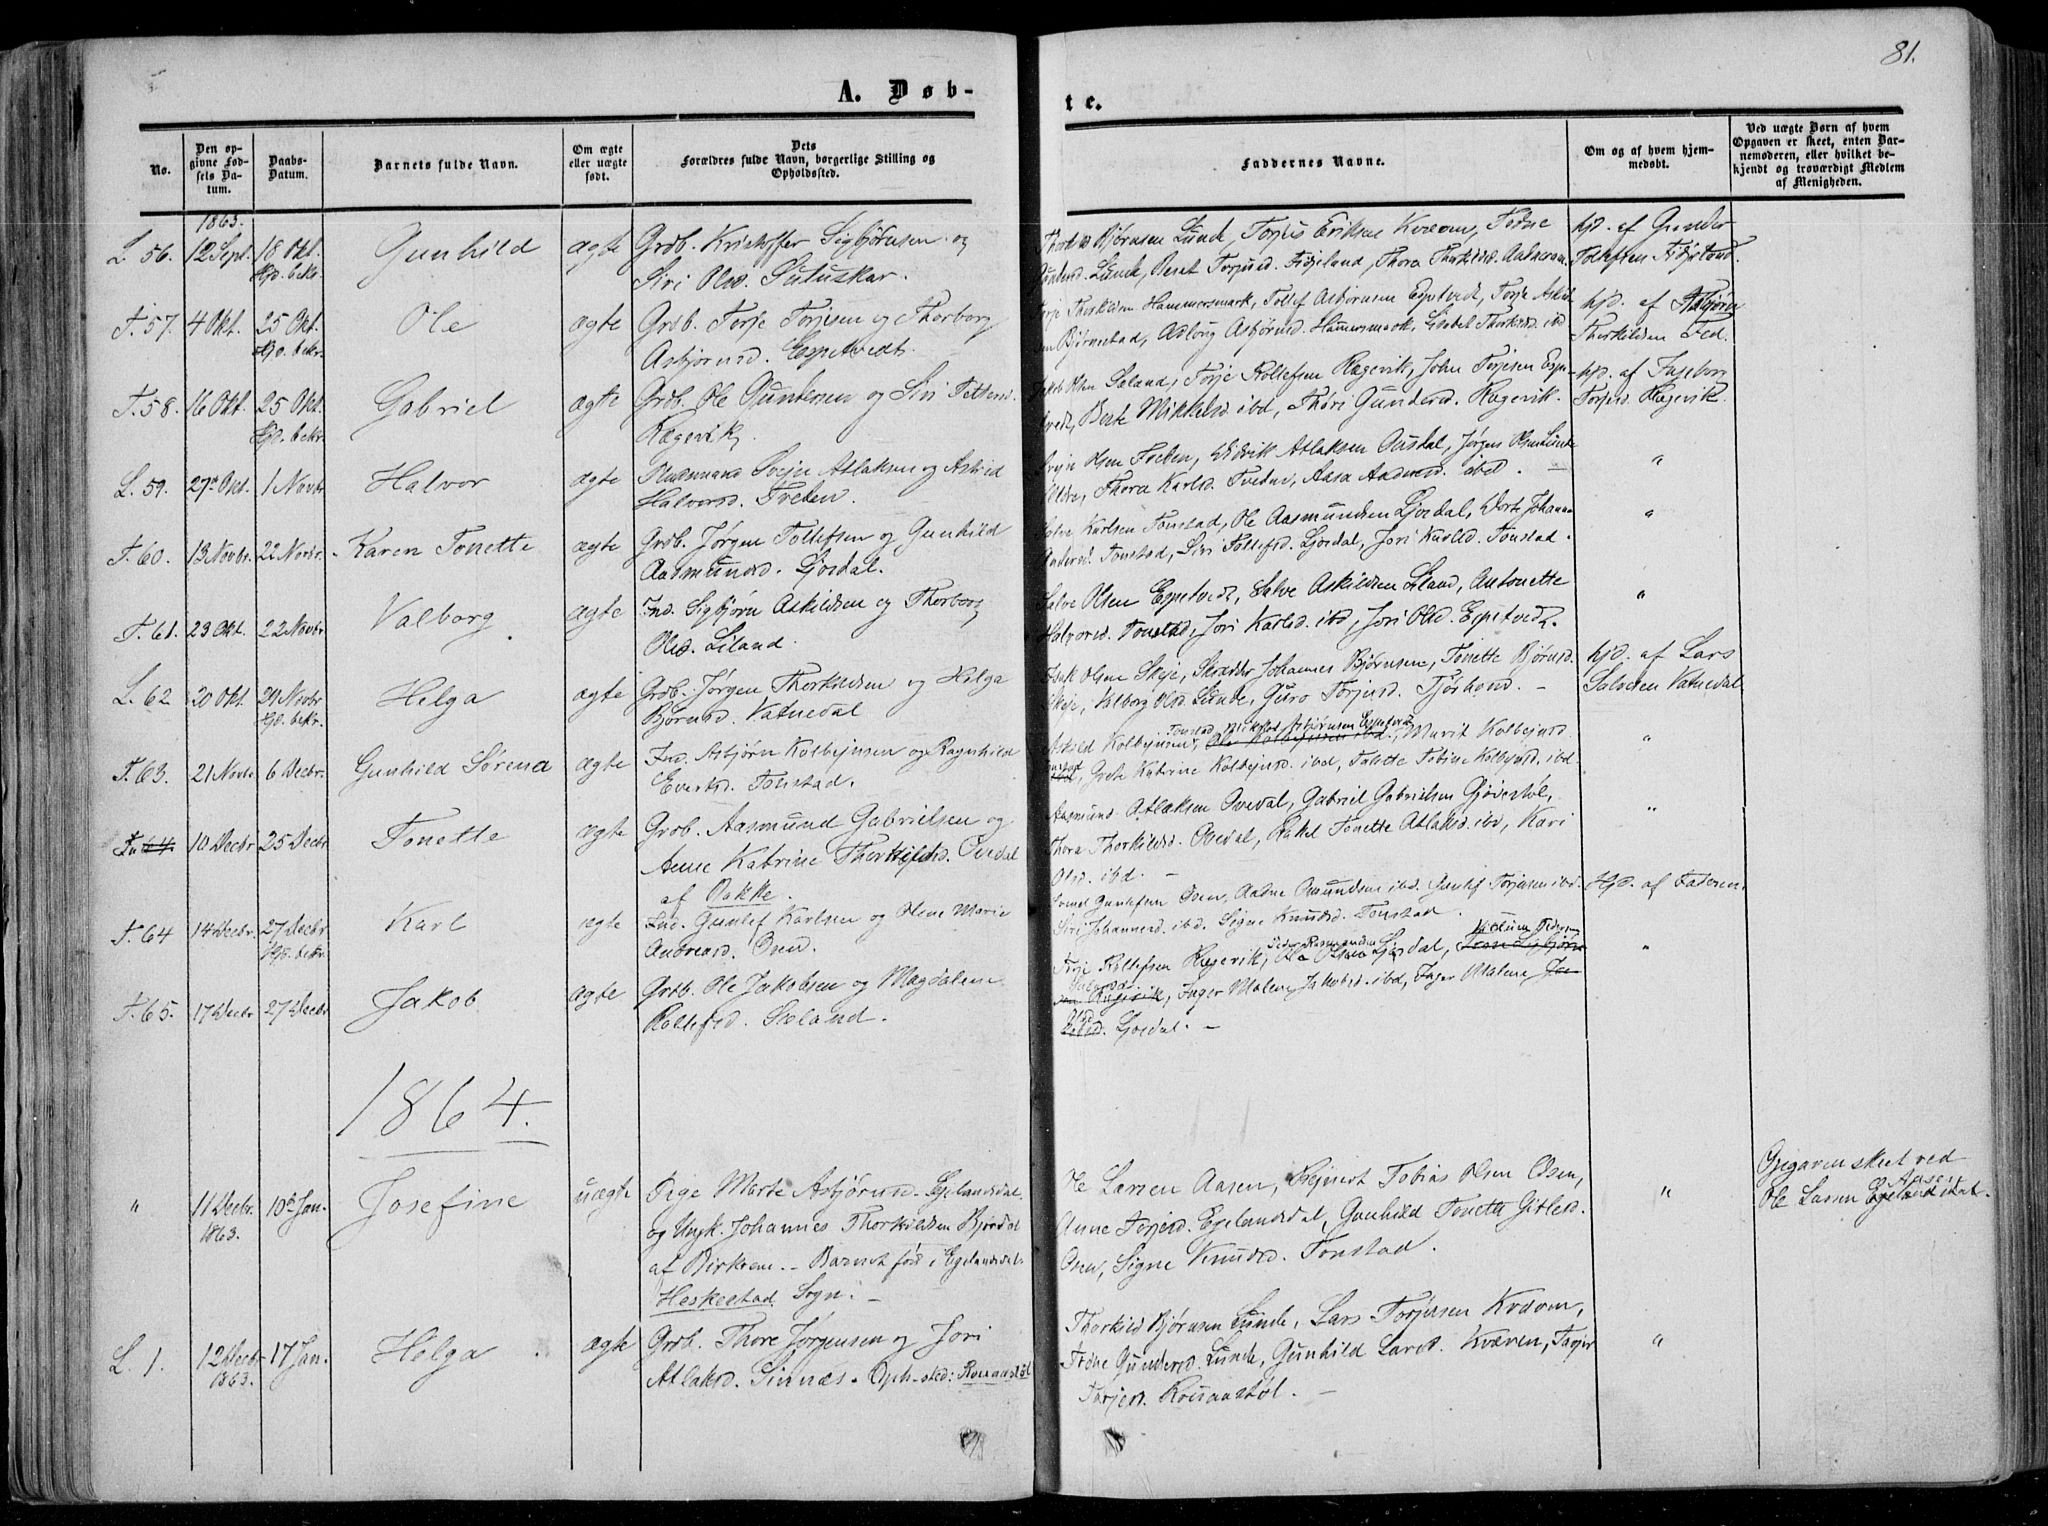 81.
A. Døb-
te.
No.
Den op-
givne Fød-
sels Da-
tum.
Daabs-
Datum.
Barnets fulde Navn.
Om ægte
eller uægte
født.
Dets
Forældres fulde Navn, borgerlige Stilling og
Opholdssted.
Faddernes Navne.
Om og af hvem hjem-
medøbt.
Ved uægte Børn af hvem
Opgaven er skeet, enten Bar-
nemoderen, eller hvilket be-
kjendt og troværdigt Medlem
af Menigheden.
1863.
L. 56. 12 Sept. 18 Okt. Gunhild ægte Grdb. Kristoffer Sigbjørnsen og
Hjd. bekr. Siri Olsd. Suluskar.
Bjørnsen Lunde, Torjus Eriksen Kvæven, Todne
Gunders. Lunde, Berat Torjusd. Fidjeland, Thora Thorkilds.
hjd. af Gunder
Tollefsen Fidjeland.
T. 57. 4 Okt. 25 Okt. Ole ægte Grdb. Torje Torjesen og Thorborg
Hjd. bekr. Asbjørnsd. Espetvedt.
Torje Thorkildsen Hammersmark, Tollef Asbørnsen Espetvedt, Torje Askild-
sen Bjørnestad, Aslong Asbørnsd. Hammersmark, Lisabet Thorkilsd. ibd
hjd. af Asbjørn
Thorkildsen Fed.
T. 58. 16 Okt. 25 Okt. Gabriel ægte Grdb. Ole Gundersen og Siri Tollevsd.
Hjd. bekr. Rægevik.
Jakob Olsen Sæland, Torje Rollefsen Rægevik, John Torjesen Espe-
tvedt, Berte Mikkelsd ibd, Thori Gundersd. Rægevik.
hjd. af Ingebor
Torjesd. Rægevik.
L. 59. 27de Okt. 1 Novbr Halvor ægte Huusmand Svejn Atlaksen og Astrid
Halvorsd. Tveten.
Svejn Olsen Tveten, Didrik Atlaksen Ousdal, Jørgen Olsen Lunde
Thora Karlsd. Tveten, Aasa Aadnesd. ibd. —
"
T. 60. 13 Novbr. 22 Novbr. Karen Tonette ægte Grdb. Jørgen Tollefsen og Gunhild
Aasmundsd. Ljosdal.
Salve Karlsen Tonstad, Ole Aasmundsen Ljosdal, Dorte Johanne
Andersd. Tonstad, Siri Tollefsd. Ljosdal, Jori Karlsd. Tonstad.
"
T. 61. 23 Okt. 22 Novbr Valborg ægte Ind. Sigbjørn Askildsen og Thorborg
Olsd. Liland.
Salve Olsen Espetvedt, Salve Askildsen Liland, Antonette
Halvorsd. Tonstad, Jori Karlsd. ibd, Jori Olsd. Espetvedt.
"
L. 62 20 Okt. 29 Novbr Helga ægte Grdb. Jørgen Thorkildsen og Helga
Hjd. bekr. Bjørnsd. Vatnedal
Isak Olsen Skeje, Skrædder Johannes Bjørnsen, Tonette Bjørnsd.
Skeje, Valborg Olsd. Lunde, Guro Torjusd. Tjørhom. —
hjd. af Lars
Salvesen Vatnedal
T. 63. 21 Novbr. 6 Decbr. Gunhild Sørena ægte Ind. Asbjørn Kolbejnsen og Ragnhild
Evertsd. Tonstad.
Tonstad, Mikkel Asbjørnsen Espetvedt
Askild Kolbejnsen, Ole Kolbejnsen ibd., Marit Kolbejnsd.
Tonstad
ibd, Grete Katrine Kolbejnsd. ibd, Tonette Tobine Kolbejnsd. ibd
"
64. 10 Decbr 25 Decbr Tonette ægte Grdb. Aasmund Gabrielsen og
Anne Katrine Thorkildsd. Ovedal
af Bakke.
Aasmund Atlaksen Ovedal, Gabriel Gabrielsen Gjøvestøl,
Thora Thorkildsd. Ovedal, Rakel Tonette Atlaksd. ibd, Kari
Olsd. ibd. —
"
T. 64 14 Decbr. 27 Decbr Karl ægte Ind. Gunlef Karlsen og Olene Marie
Hjd. bekr. Andreasd. Osen.
Svend Gunlefsen Osen, Aadne Omundsen ibd. Gunlef Torjusen ibd.
Siri Johannesd. ibd. Signe Knudsd. Tonstad.
Hjd. af Faderen
T. 65. 17 Decbr 27 Decbr Jakob. ægte Grdb. Ole Jakobsen og Magdalene
Rollefsd. Sæland.
Torje Rollefsen Rægevik, Ole Olsen Ljosdal,
Rægevik, Inger Malene Jakobsd. ibd, Inger Malene
Olsd.
Ljosdal. —
"
1864.
" 11 Decbr. 10de Jan. Josefine uægte Pige Marte Asbjørnsd. Egelandsdal
1863. og Ungk. Johannes Thorkildsen Bjordal
af Birkrem. — Barnet født i Egelandsdal
Heskestad Sogn. —
Ole Larsen Aasen, Rejnert Tobias Olsen Osen,
Anne Torjesd. Egelandsdal, Gunhild Tonette Gitlesd.
Osen, Signe Knudsd. Tonstad.
"
Opgaven skeet ved
Aasen
Ole Larsen Egelandsdal.
L. 1. 12 Decbr 17 Jan. Helga ægte Grdb. Thore Jørgensen og Jori
1863. Atlaksd. Sinnæs. Oph.sted: Rousastøl
Thorkild Bjørnsen Lunde, Lars Torjesen Kvæven,
Todne Gundersd. Lunde, Gunhild Larsd. Kvæven, Inger
Torjesd. Rousastøl. —
"